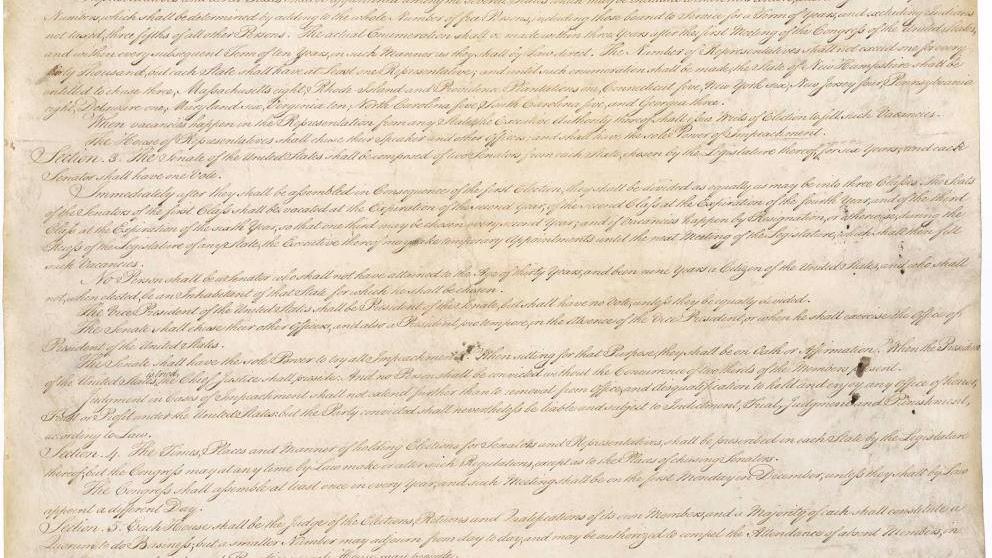 Numbers, which shall be determined by adding to the whole Number of free Persons, including those bound to Service for a Term of Years, and excluding Indians
not taxed, three fifths of all other Persons. The actual Enumeration shall be made within three Years after the first Meeting of the Congress of the United States,
and within every subsequent Term of ten Years, in such Manner as they shall by Law direct. The Number of Representatives shall not exceed one for every
thirty Thousand, but each State shall have at Least one Representative; and until such enumeration shall be made, the State of New Hampshire shall be
entitled to chuse three, Massachusetts eight, Rhode-Island and Providence Plantations one, Connecticut five, New-York six, New Jersey four, Pennsylvania
eight, Delaware one, Maryland six, Virginia ten, North Carolina five, South Carolina five, and Georgia three.
When vacancies happen in the Representation from any State, the Executive Authority thereof shall issue Writs of Election to fill such Vacancies.
The House of Representatives shall chuse their Speaker and other Officers; and shall have the sole Power of Impeachment.
Section. 3. The Senate of the United States shall be composed of two Senators from each State, chosen by the Legislature thereof, for six Years; and each
Senator shall have one Vote.
Immediately after they shall be assembled in Consequence of the first Election, they shall be divided as equally as may be into three Classes. The Seats
of the Senators of the first Class shall be vacated at the Expiration of the second Year, of the second Class at the Expiration of the fourth Year, and of the third
Class at the Expiration of the sixth Year, so that one third may be chosen every second Year; and if Vacancies happen by Resignation, or otherwise, during the
Recess of the Legislature of any State, the Executive thereof may make temporary Appointments until the next Meeting of the Legislature, which shall then fill
such Vacancies.
No Person shall be a Senator who shall not have attained to the Age of thirty Years, and been nine Years a Citizen of the United States, and who shall
not, when elected, be an Inhabitant of that State for which he shall be chosen.
The Vice President of the United States shall be President of the Senate, but shall have no Vote, unless they be equally divided.
The Senate shall chuse their other Officers, and also a President pro tempore, in the Absence of the Vice President, or when he shall exercise the Office of
President of the United States.
The Senate shall have the sole Power to try all Impeachments. When sitting for that Purpose, they shall be on Oath or Affirmation. When the President
of the United States is tried, the Chief Justice shall preside: And no Person shall be convicted without the Concurrence of two thirds of the Members present.
Judgment in Cases of Impeachment shall not extend further than to removal from Office, and disqualification to hold and enjoy any Office of honor,
Trust or Profit under the United States: but the Party convicted shall nevertheless be liable and subject to Indictment, Trial, Judgment and Punishment,
according to Law.
Section. 4. The Times, Places and Manner of holding Elections for Senators and Representatives, shall be prescribed in each State by the Legislature
thereof; but the Congress may at any time by Law make or alter such Regulations, except as to the Places of chusing Senators.
The Congress shall assemble at least once in every Year, and such Meeting shall be on the first Monday in December, unless they shall by Law
appoint a different Day.
Section. 5. Each House shall be the Judge of the Elections, Returns and Qualifications of its own Members, and a Majority of each shall constitute a
Quorum to do Business; but a smaller Number may adjourn from day to day, and may be authorized to compel the Attendance of absent Members, in